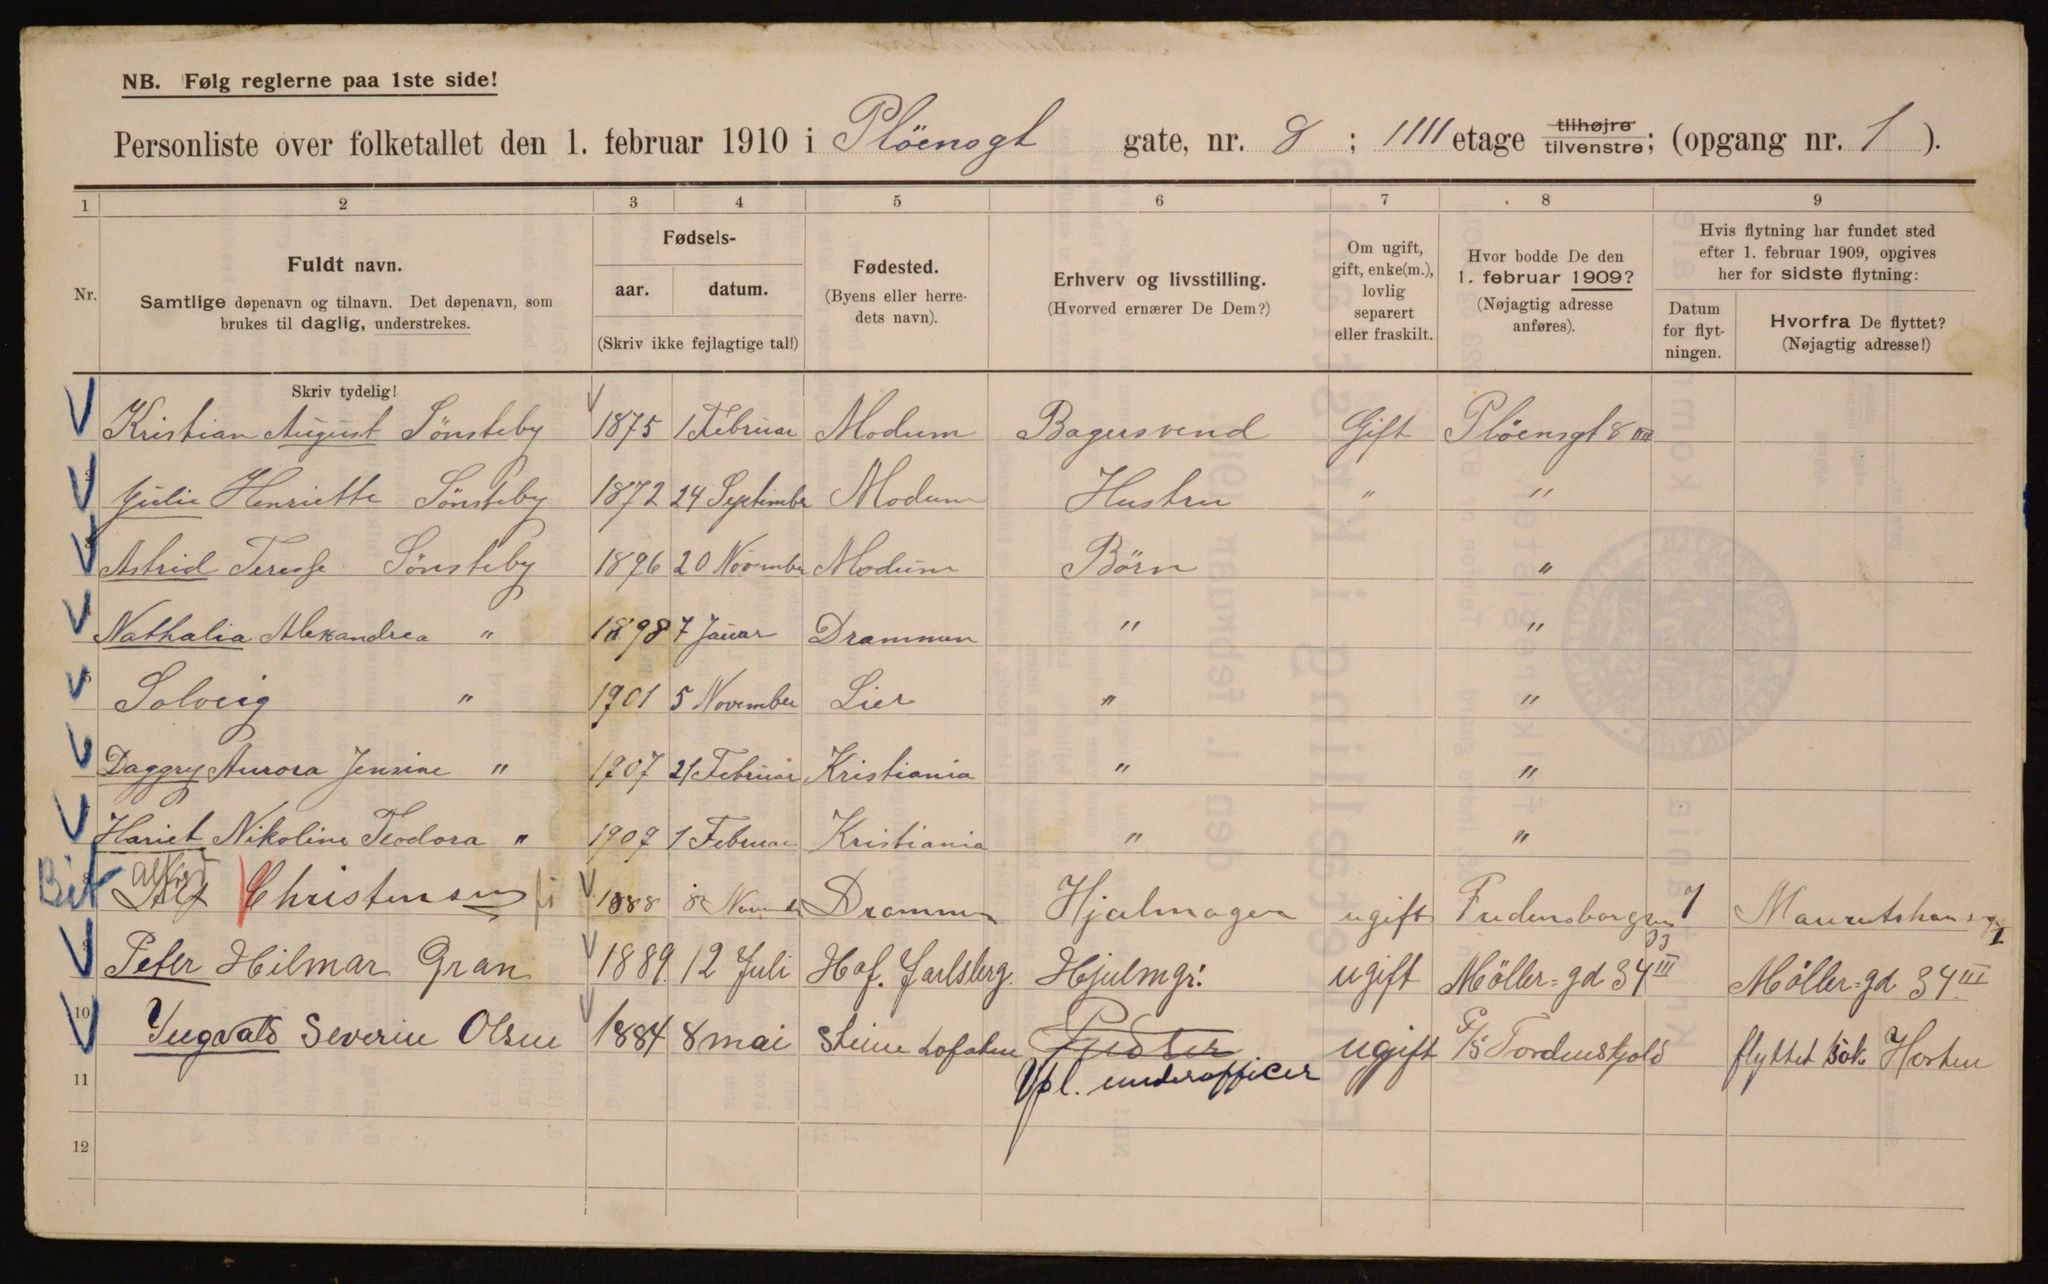 NB. Følg reglerne paa 1ste side!
Personliste over folketallet den 1. februar 1910 i Plöensgt gate, nr. 8 ; IIII etage tilhøjre tilvenstre; (opgang nr. 1 ).
1 2 3 4 5 6 7 8 9
Nr.
Fuldt navn.
Samtlige døpenavn og tilnavn. Det døpenavn, som
brukes til daglig, understrekes.
Skriv tydelig!
Fødsels-
aar. datum.
(Skriv ikke fejlagtige tal!)
Fødested.
(Byens eller herre-
dets navn).
Erhverv og livsstilling.
(Hvorved ernærer De Dem?)
Om ugift,
gift, enke(m.),
lovlig
separert
eller fraskilt.
Hvor bodde De den
1. februar 1909?
(Nøjagtig adresse
anføres).
Hvis flytning har fundet sted
efter 1. februar 1909, opgives
her for sidste flytning:
Datum
for flyt-
ningen.
Hvorfra De flyttet?
(Nøjagtig adresse!)
Kristian August Sönsteby 1875 1 Februar Modum Bagersvend Gift Plöensgt 8 IIII
Julie Henriette Sönsteby 1872 24 September Modum Hustru " "
Astrid Terese Sönsteby 1896 20 November Modum Börn "
Nathalia Alexandrea " 1898 7 Januar Drammen " "
Solveig " 1901 5 November Lier " "
Daggry Aurora Jensine " 1907 21 Februar Kristiania " "
Hariet Nikoline Teodora " 1909 1 Februar Kristiania " "
Alf Christensen 1888 8 Novemb Drammen Hjulmager ugift Fredensborgvn
Peter Hilmar Gran 1889. 12 Juli Hof. Jarlsberg. Hjulmgr: ugift Möller=gd 34 III Möller=gd 34 III
10 Ingvald Severin Olsen 1884 8 mai Steine Lofoten ugift P/S Tordenskjold flyttet Horten
11 Vpl. underofficer
12